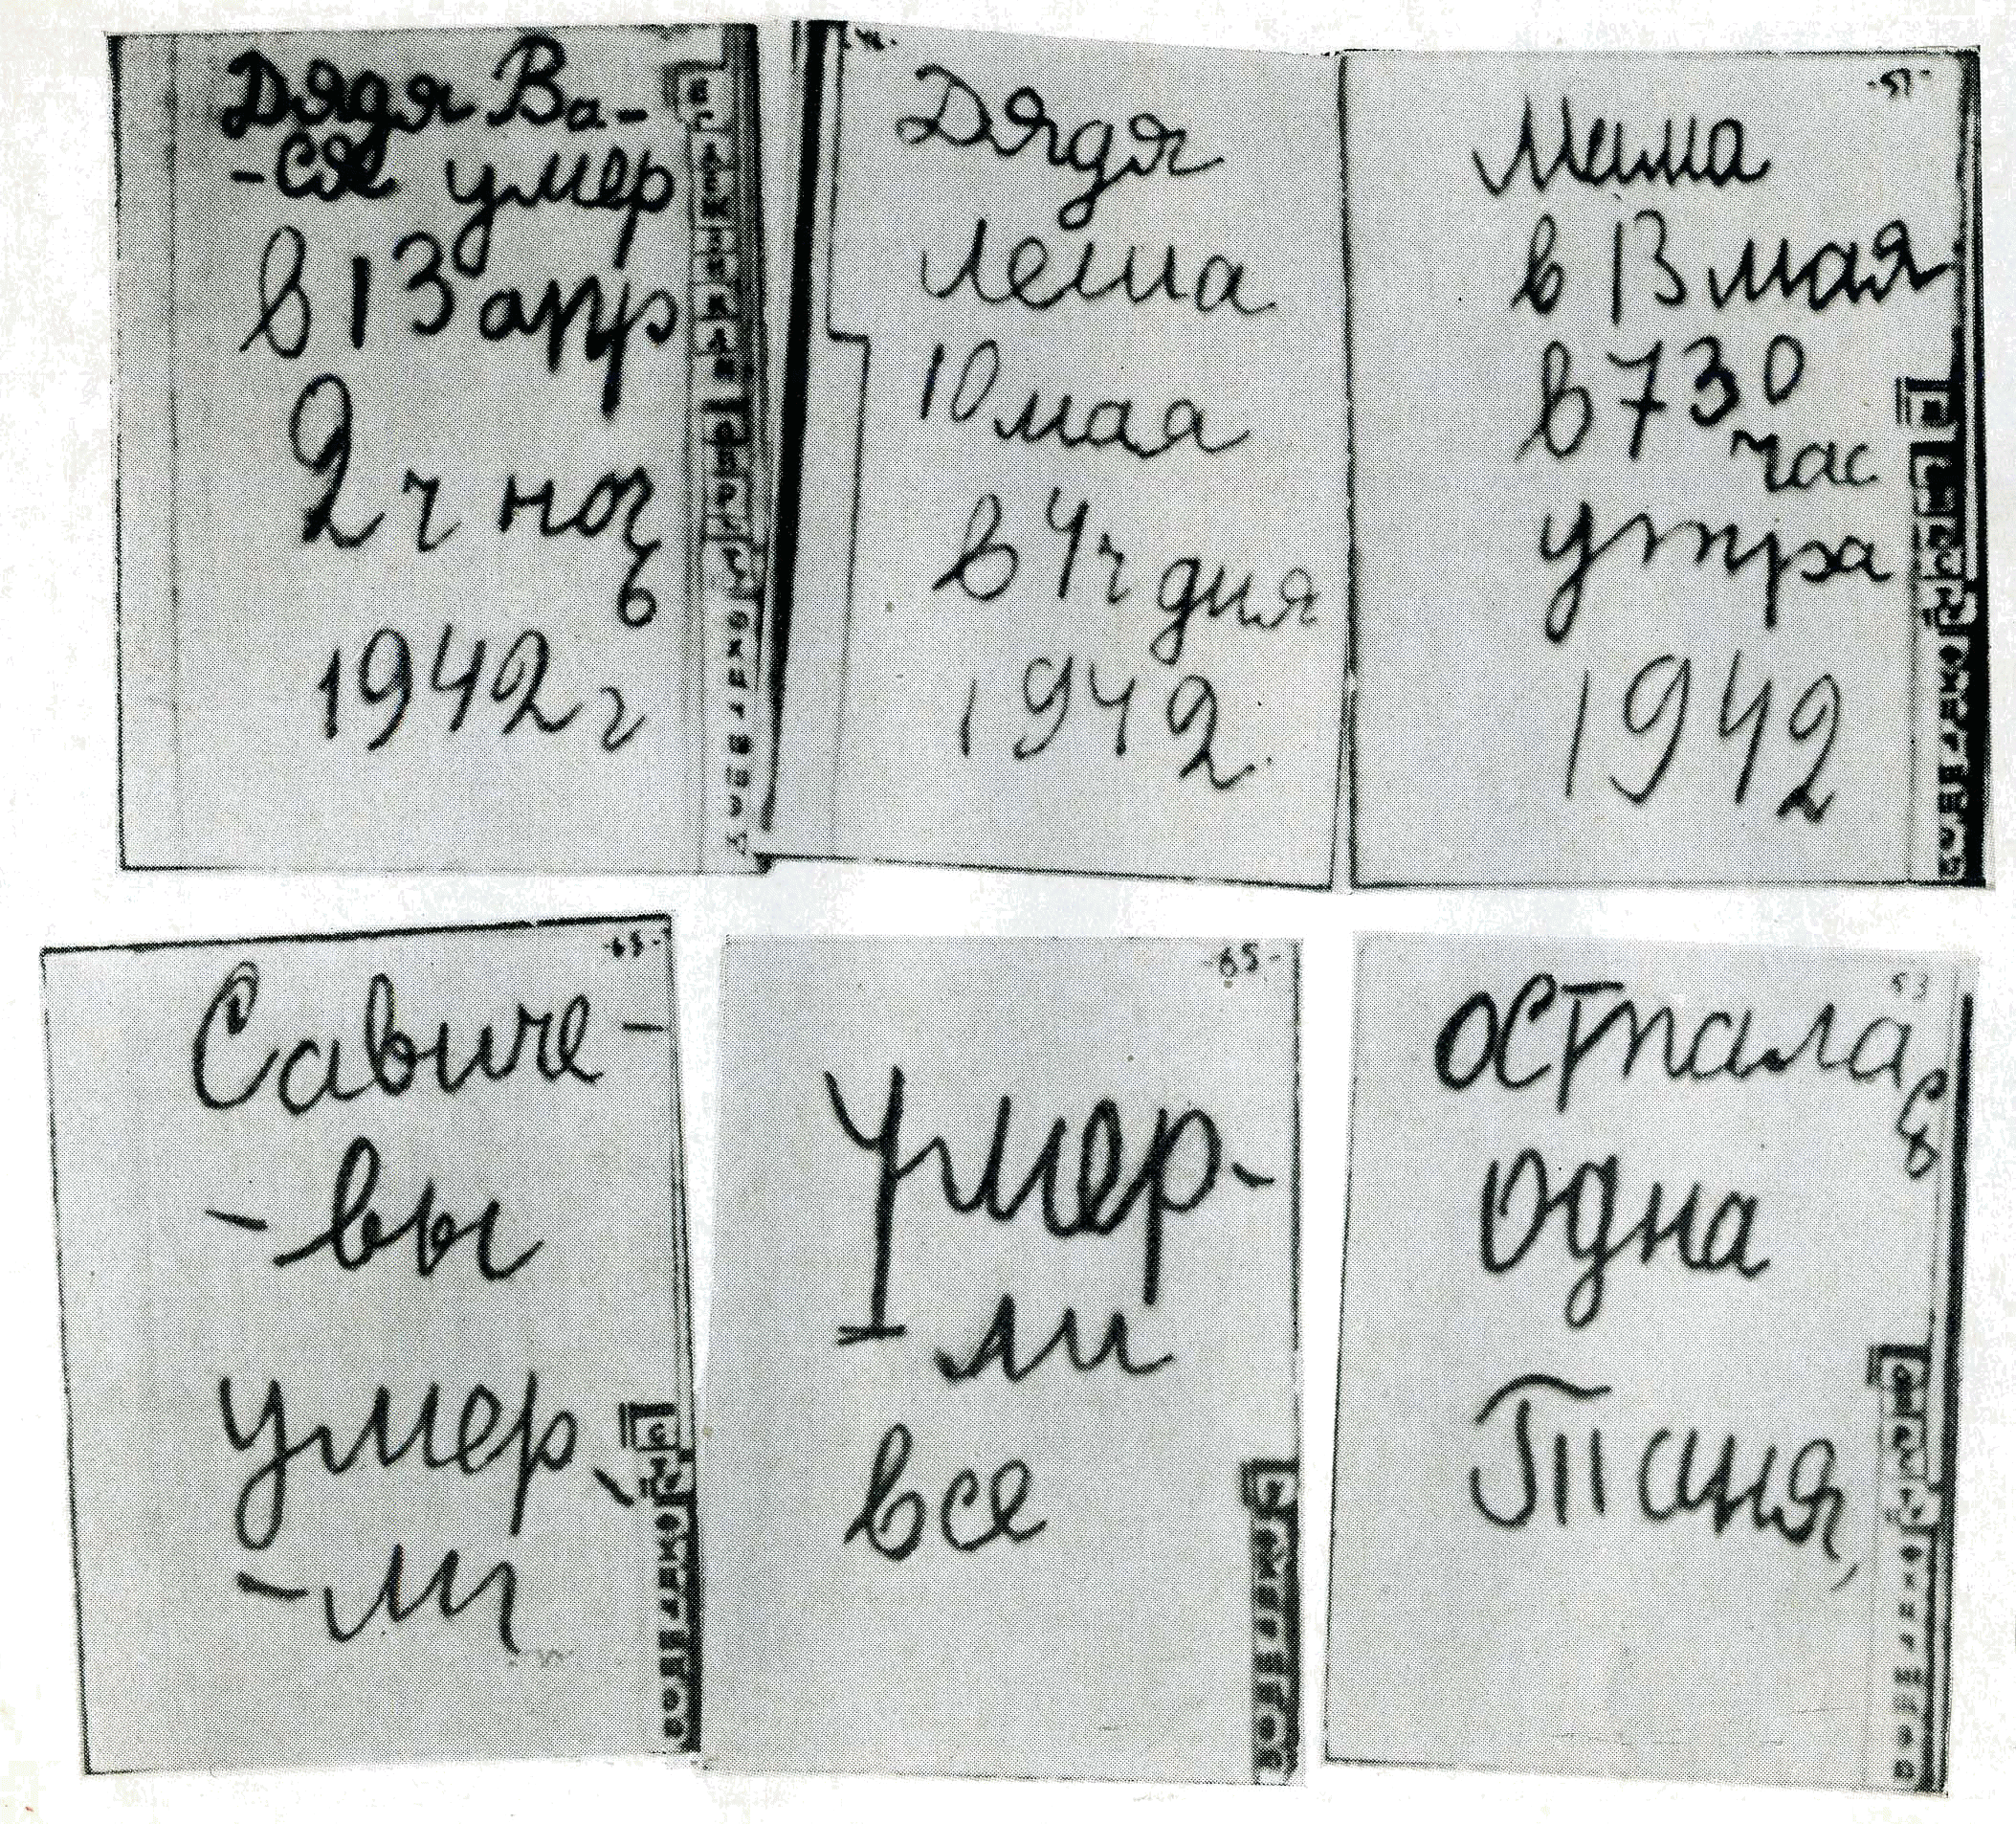 Дядя Ва-
-ся умер
в 13 апр
2 ч ноч
ь
1942 г
Дядя
Леша
10 мая
в 4 ч дня
1942
Мама
в 13 мая
в 730
час
утра
1942
Савиче-
-вы
умер
-ли
Умер-
ли
все
осталас
ь
одна
Таня